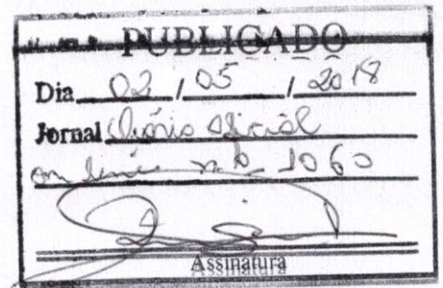 PUBLICADO
Dia 02 / 05 / 2018
Jornal Diário Oficial
on line nº 1060
Assinatura